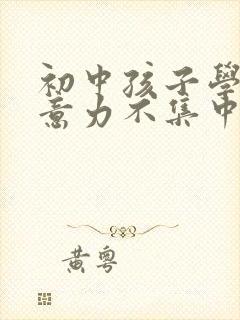 初中孩子學
意力不集中
黄粤